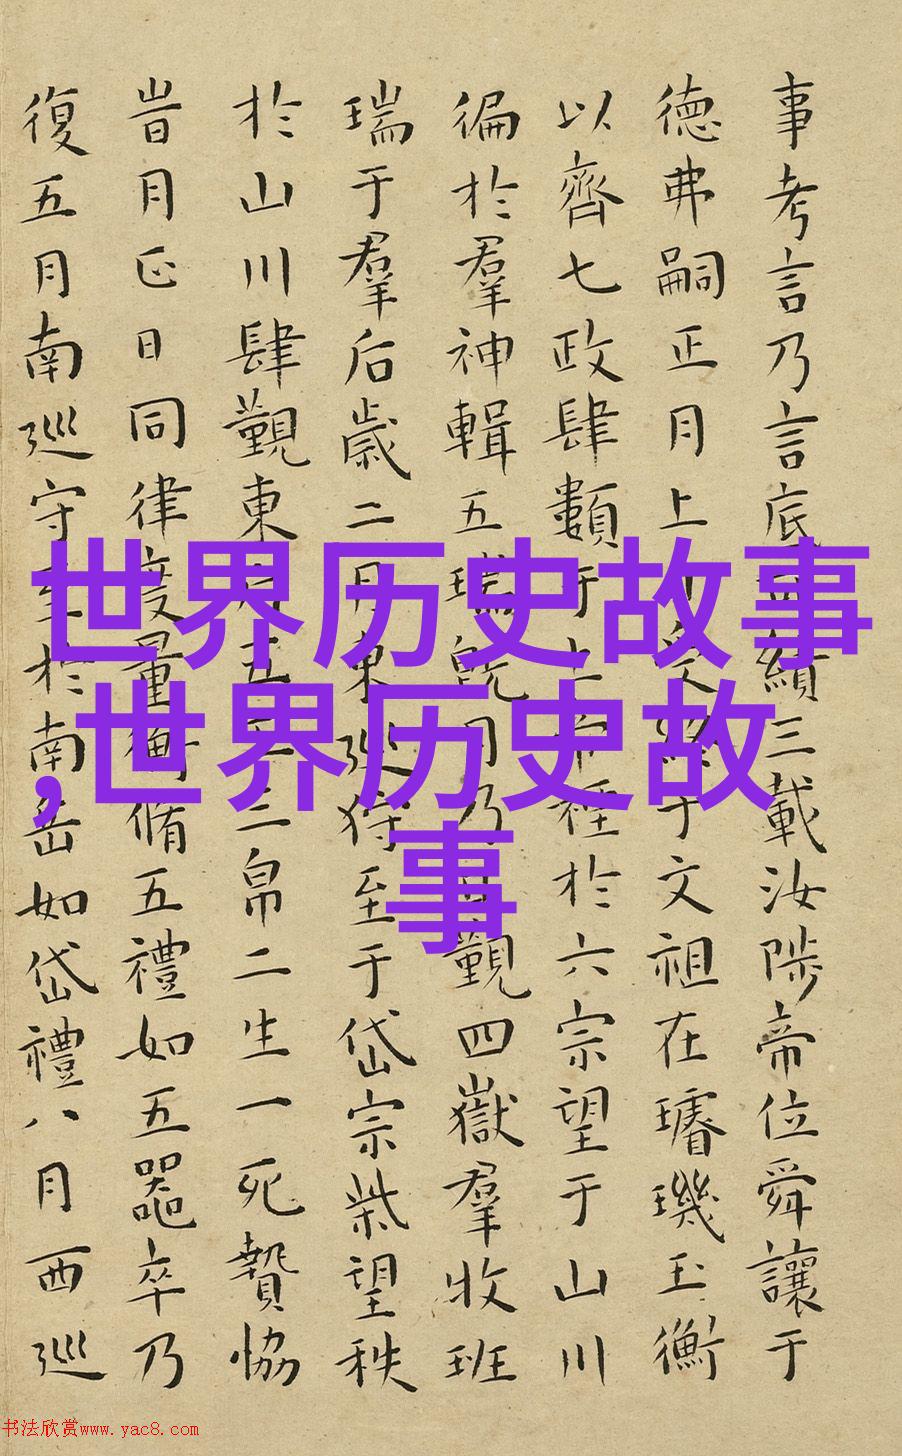 事考言乃言底績三載汝陟帝位舜讓于
德弗嗣正月上受于文祖在璿璣玉衡
以齊七政肆類于上帝禋於六宗望于山川
徧於羣神輯五瑞既月乃覲四嶽羣牧班
瑞于羣后歲二月東巡狩至于岱宗柴望秩
於山川肆覲東五三帛二生一死贄恊
旹月正日同律度量衡脩五禮如五噐卒乃
復五月南巡守至於南岳如岱禮八月西巡
世界历史故事
,世界历史故
事
书法欣赏www.yac8.com